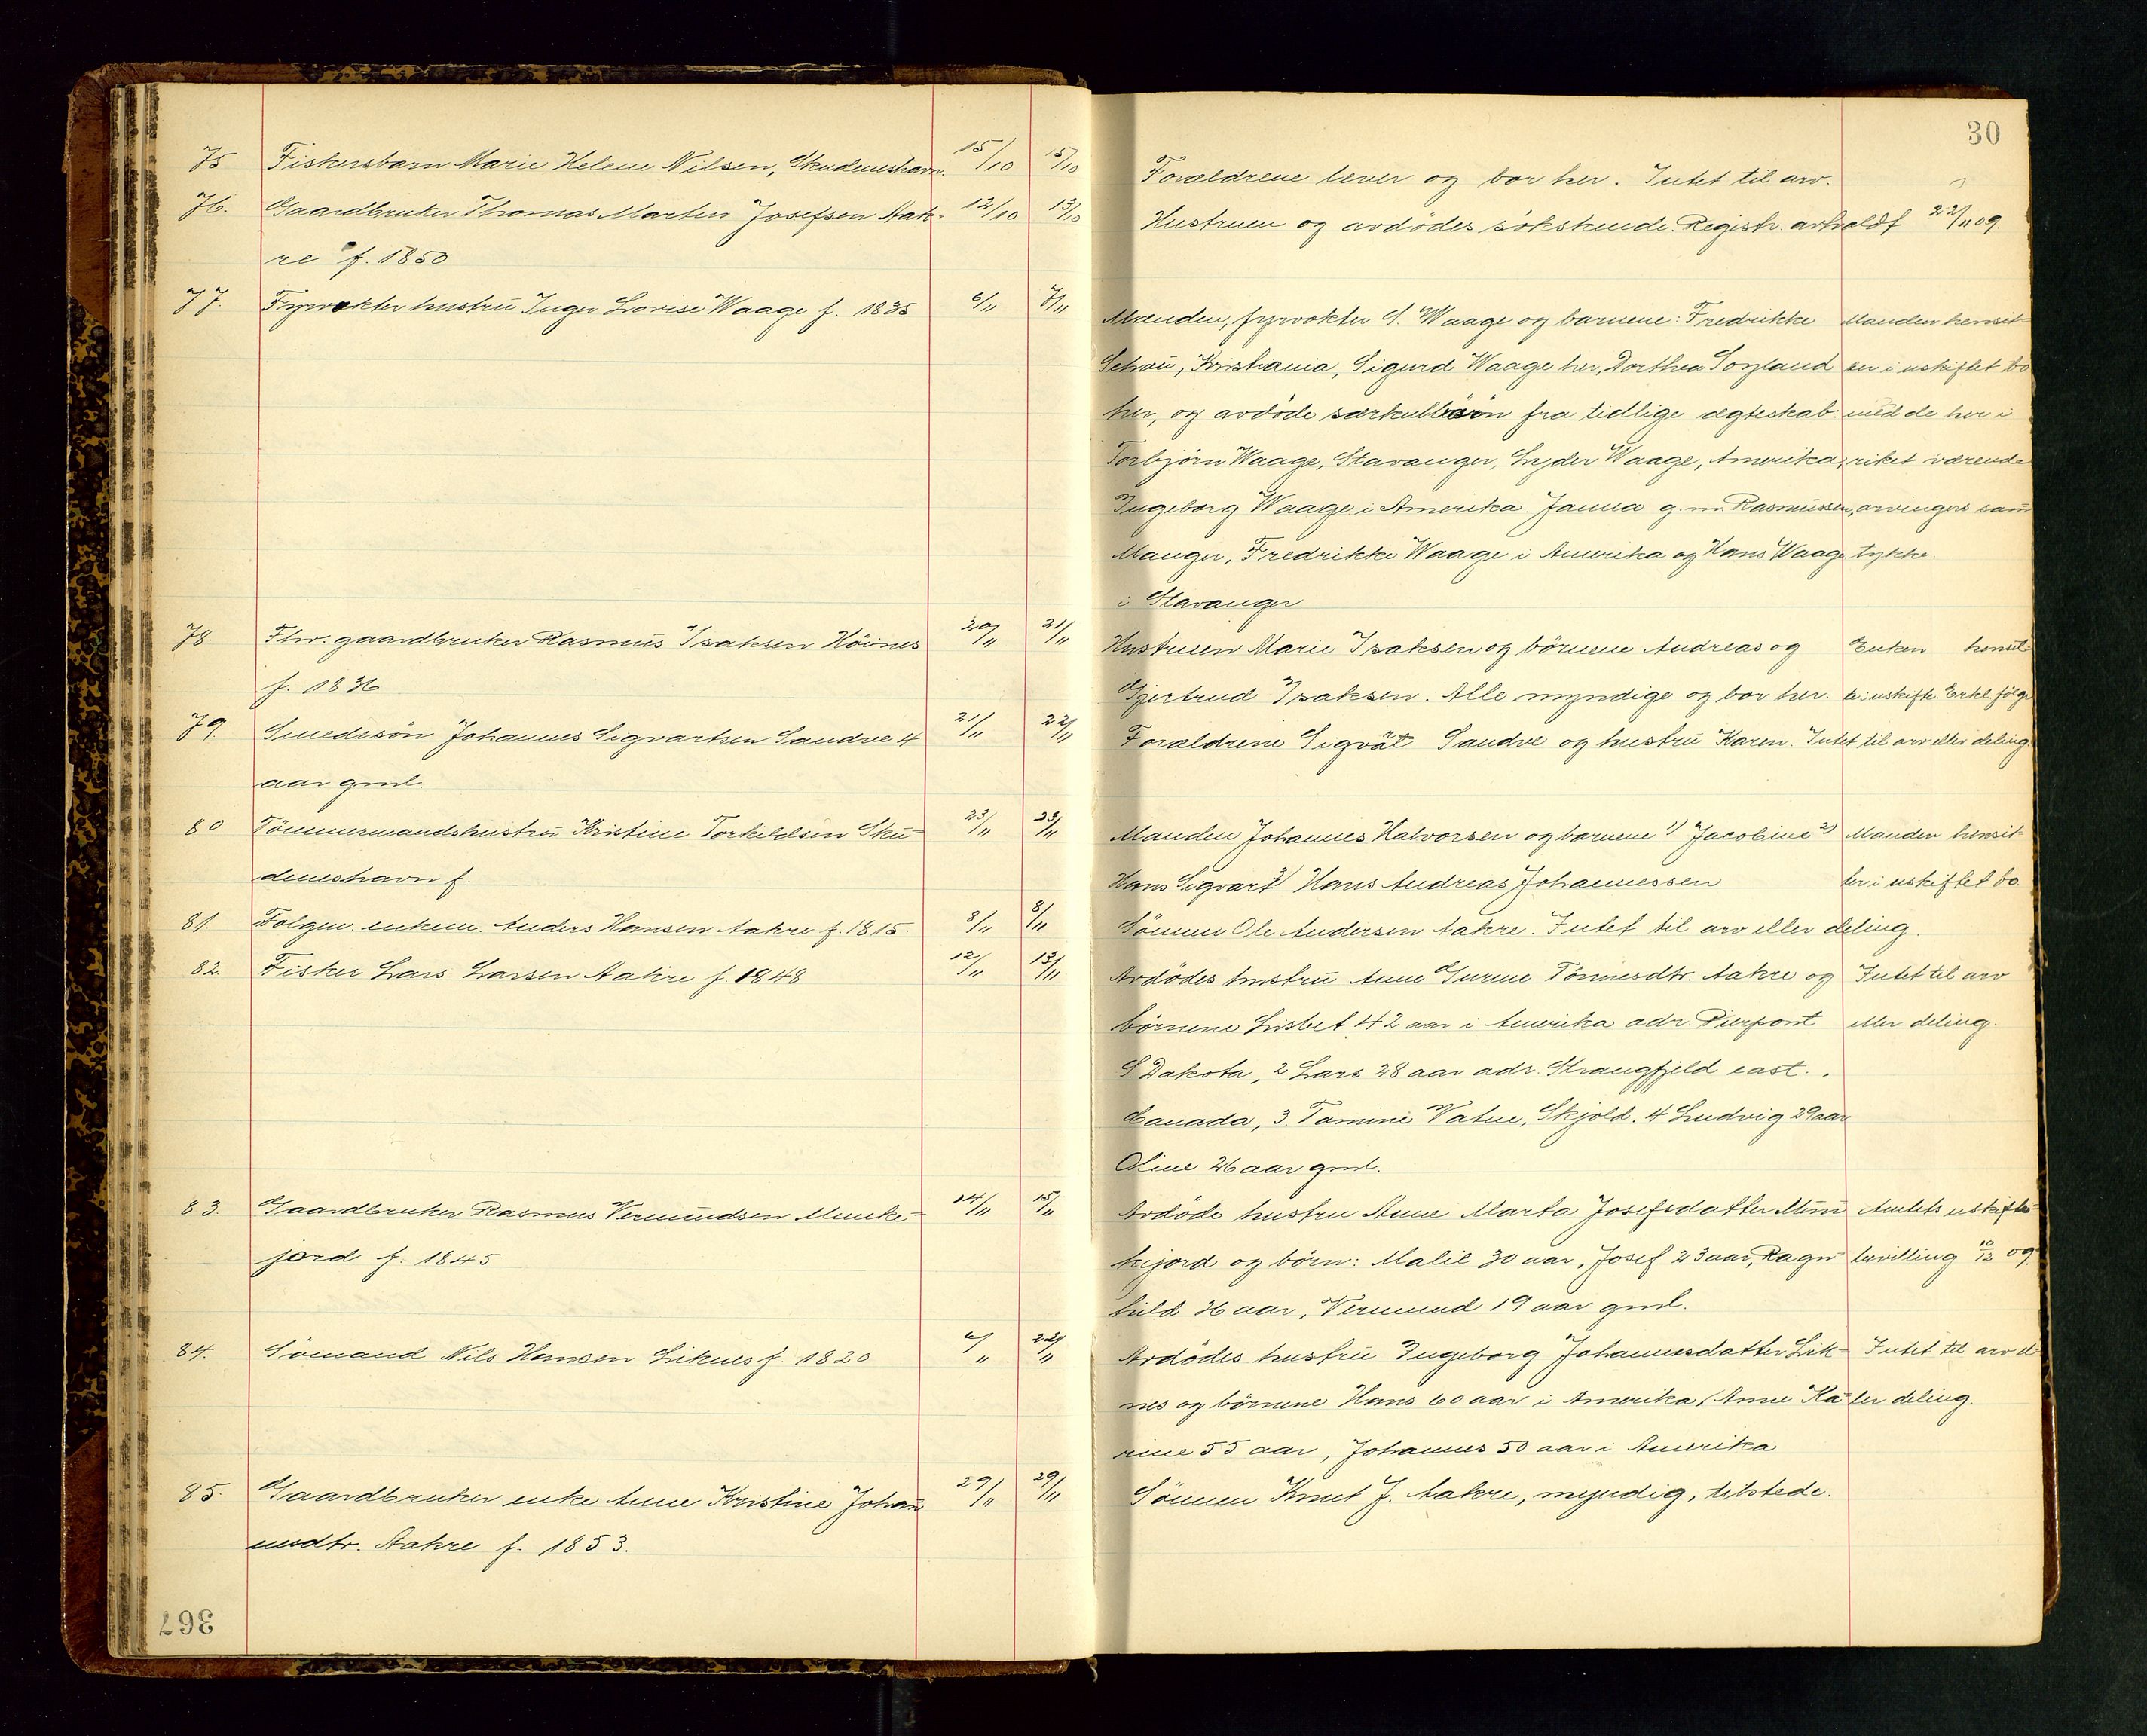 30
75 Fiskersbarn Marie Helene Nilsen, Skudeneshavn. 15/10 15/10
Forældrene lever og bor her. Intet til arv.
76. Gaardbruker Thomas Martin Josefsen Aak- 12/10 13/10
Hustruen og avdödes söskende. Registr. avholdt 22/11 09.
re f. 1850
77. Fyrvokter hustru Inger Lovise Waage f. 1835 6/11 7/11
Manden, fyrvokter S. Waage og barnene: Fredrikke Manden hensit-
Schou, Kristiania, Sigurd Waage her, Dorthea Sorland ter i uskiftet bo
her, og avdöde særkuldbörn fra tidlige ægteskab: med de her i
Torbjörn Waage, Stavanger, Lyder Waage, Amerika, riket værende
Ingeborg Waage i Amerika. Janna g. m. Rasmussen, arvingers sam
Manger, Fredrikke Waage i Amerika og Hans Waage tykke.
i Stavanger
78. Fhv. gaardbruker Rasmus Isaksen Höines 20/11 21/11
Hustruen Marie Isaksen og börnene Andreas og Enken hensit-
f. 1836
Gjertrud Isaksen. Alle myndige og bor her. te i uskifte. Erkl. følge
79. Smedssön Johannes Sigvartsen Sandve 4 21/11 22/11
Forældrene Sigvat Sandve og hustru Karen. Intet til arv eller deling.
aar gml.
80 Tömmermandshustru Kristine Torkeldsen Sku- 23/11 23/11
Manden Johannes Halvorsen og barnene 1) Jacobine 2) Manden hensit-
deneshavn f.
Hans Sigvart 3) Hans Andreas Johannessen ter i uskiftet bo.
81. Folgem. enkem. Anders Hansen Aakre f. 1815. 8/11 8/11
Sönnen Ole Andersen Aakre. Intet til arv eller deling.
82. Fisker Lars Larsen Aakre f. 1848 12/11 13/11
Avdödes hustru Anne Gurine Tönnesdtr. Aakre og Intet til arv
börnene Lisbet 42 aar i Amerika adr. Pierpont eller deling.
S. Dakota, 2 Lars 28 aar adr. Strangfjeld east.
Canada, 3. Tamine Vatne, Skjold. 4 Ludvig 29 aar
Oline 26 aar gml.
83. Gaardbruker Rasmus Vermundsen Munke- 14/11 15/11
Avdöde hustru Anne Marta Josefsdatter Mun Amtets uskifte-
jord f. 1845
kejord og börn: Malil 30 aar, Josef 23 aar, Ragn- bevilling 10/12 09.
hild 26 aar, Vermund 19 aar gml.
84. Sömand Nils Hansen Liknes f. 1820 6/11 22/11
Avdödes hustru Ingeborg Johannesdatter Lik- Intet til arv el-
nes og börnene Hans 60 aar i Amerika, Anne Ka- ler deling.
rine 55 aar, Johannes 50 aar i Amerika
85. Gaardbruker enke Anne Kristine Johan 29/11 29/11
Sönnen Knut J. Aakre, myndig, tilstede.
nesdtr. Aakre f. 1853.
367